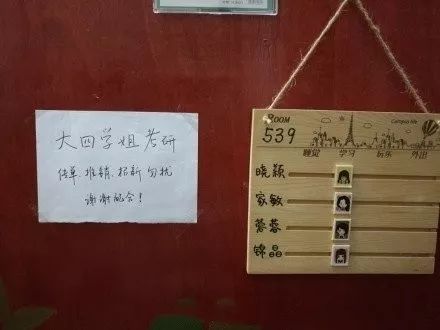 大四学姐考研
传单、推销、招新勿扰
谢谢配合！
ROOM
539
Campus life
睡觉 学习 玩乐 外出
晓颖
家敏
蓉蓉
锦晶